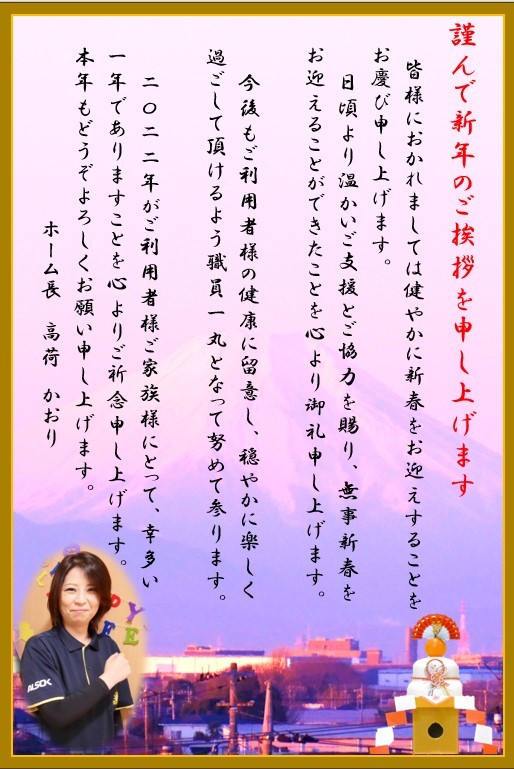 謹んで新年のご挨拶を申し上げます
皆様におかれましては健やかに新春をお迎えすることを
お慶び申し上げます。
日頃より温かいご支援とご協力を賜り、無事新春を
お迎えることができたことを心より御礼申し上げます。
今後もご利用者様の健康に留意し、穏やかに楽しく
過ごして頂けるよう職員一丸となって努めて参ります。
二〇二二年がご利用者様ご家族様にとって、幸多い
一年でありますことを心よりご祈念申し上げます。
本年もどうぞよろしくお願い申し上げます。
ホーム長 高荷 かおり
ALSOK